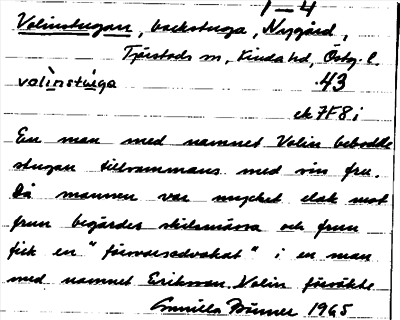 1-4
Volinstugan, backstuga, Nygård,
Tjärstads sn, Kinda hd, Östg. l.
volinstuga 43
ek 7F8i
En man med namnet Volin bebodde
stugan tillsammans med sin fru.
Då mannen var mycket elak mot
frun begärdes skilsmässa och frun
fick en "försvarsadvokat" i en man
med namnet Eriksson. Volin försökte
Gunilla 1965